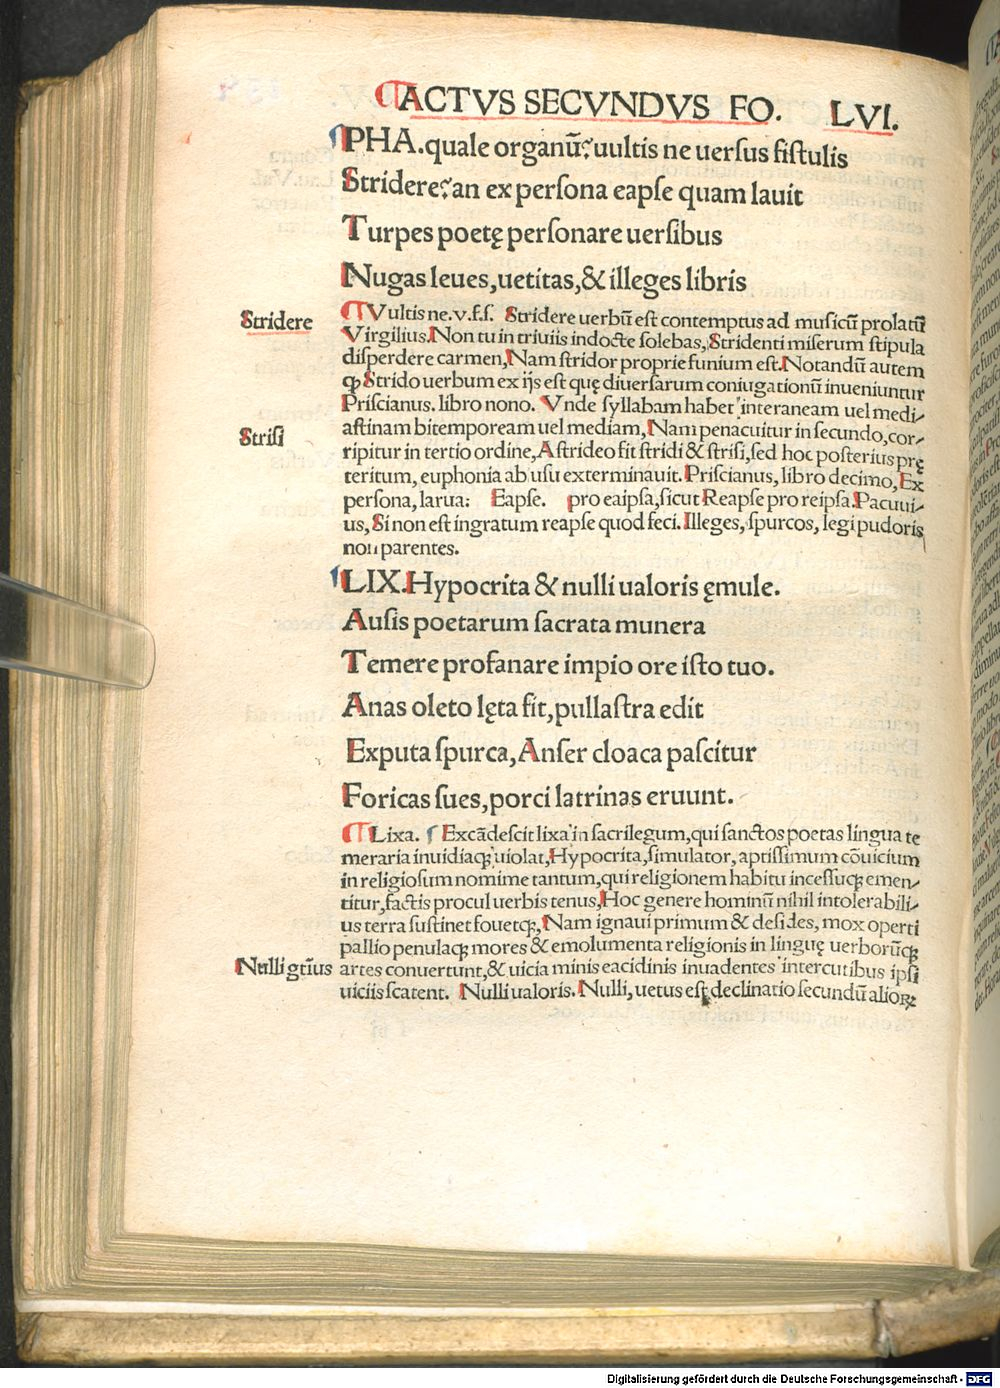 ¶ACTVS SECVNDVS FO. LVI.
¶PHA. quale organū? uultis ne uersus fistulis
Stridere? an ex persona eapse quam lauit
Turpes poetę personare uersibus
Nugas leues, uetitas, & illeges libris
Stridere
¶Vultis ne. v. f. s. Stridere uerbū est contemptus ad musicū prolatū
Virgilius. Non tu in triuiis indocte solebas, Stridenti miserum stipula
disperdere carmen, Nam stridor proprie funium est. Notandū autem
ꝙ Strido uerbum ex ijs est quę diuersarum coniugationū inueniuntur
Priscianus. libro nono. Vnde syllabam habet interaneam uel medi-
Strisi
astinam bitempoream uel mediam, Nam penacuitur in secundo, cor-
ripitur in tertio ordine, A strideo fit stridi & strisi, sed hoc posterius prę
teritum, euphonia ab usu exterminauit. Priscianus, libro decimo, Ex
persona, larua: Eapse. pro eaipsa, sicut Reapse pro reipsa. Pacuui-
us, Si non est ingratum reapse quod feci. Illeges, spurcos, legi pudoris
non parentes.
¶LIX. Hypocrita & nulli ualoris ęmule.
Ausis poetarum sacrata munera
Temere profanare impio ore isto tuo.
Anas oleto lęta fit, pullastra edit
Exputa spurca, Anser cloaca pascitur
Foricas sues, porci latrinas eruunt.
¶Lixa. ¶Excādescit lixa in sacrilegum, qui sanctos poetas lingua te
meraria inuidiaqꝫ uiolat, Hypocrita, simulator, aptissimum cōuicium
in religiosum nomime tantum, qui religionem habitu incessuqꝫ emen-
titur, factis procul uerbis tenus, Hoc genere hominū nihil intolerabili-
us terra sustinet fouetqꝫ, Nam ignaui primum & desides, mox operti
pallio penulaqꝫ mores & emolumenta religionis in linguę uerborūqꝫ
Nulli gtīus
artes conuertunt, & uicia minis eacidinis inuadentes intercutibus ipsi
uiciis scatent. Nulli ualoris. Nulli, uetus est declinatio secundū alioꝝ
Digitalisierung gefördert durch die Deutsche Forschungsgemeinschaft - DFG